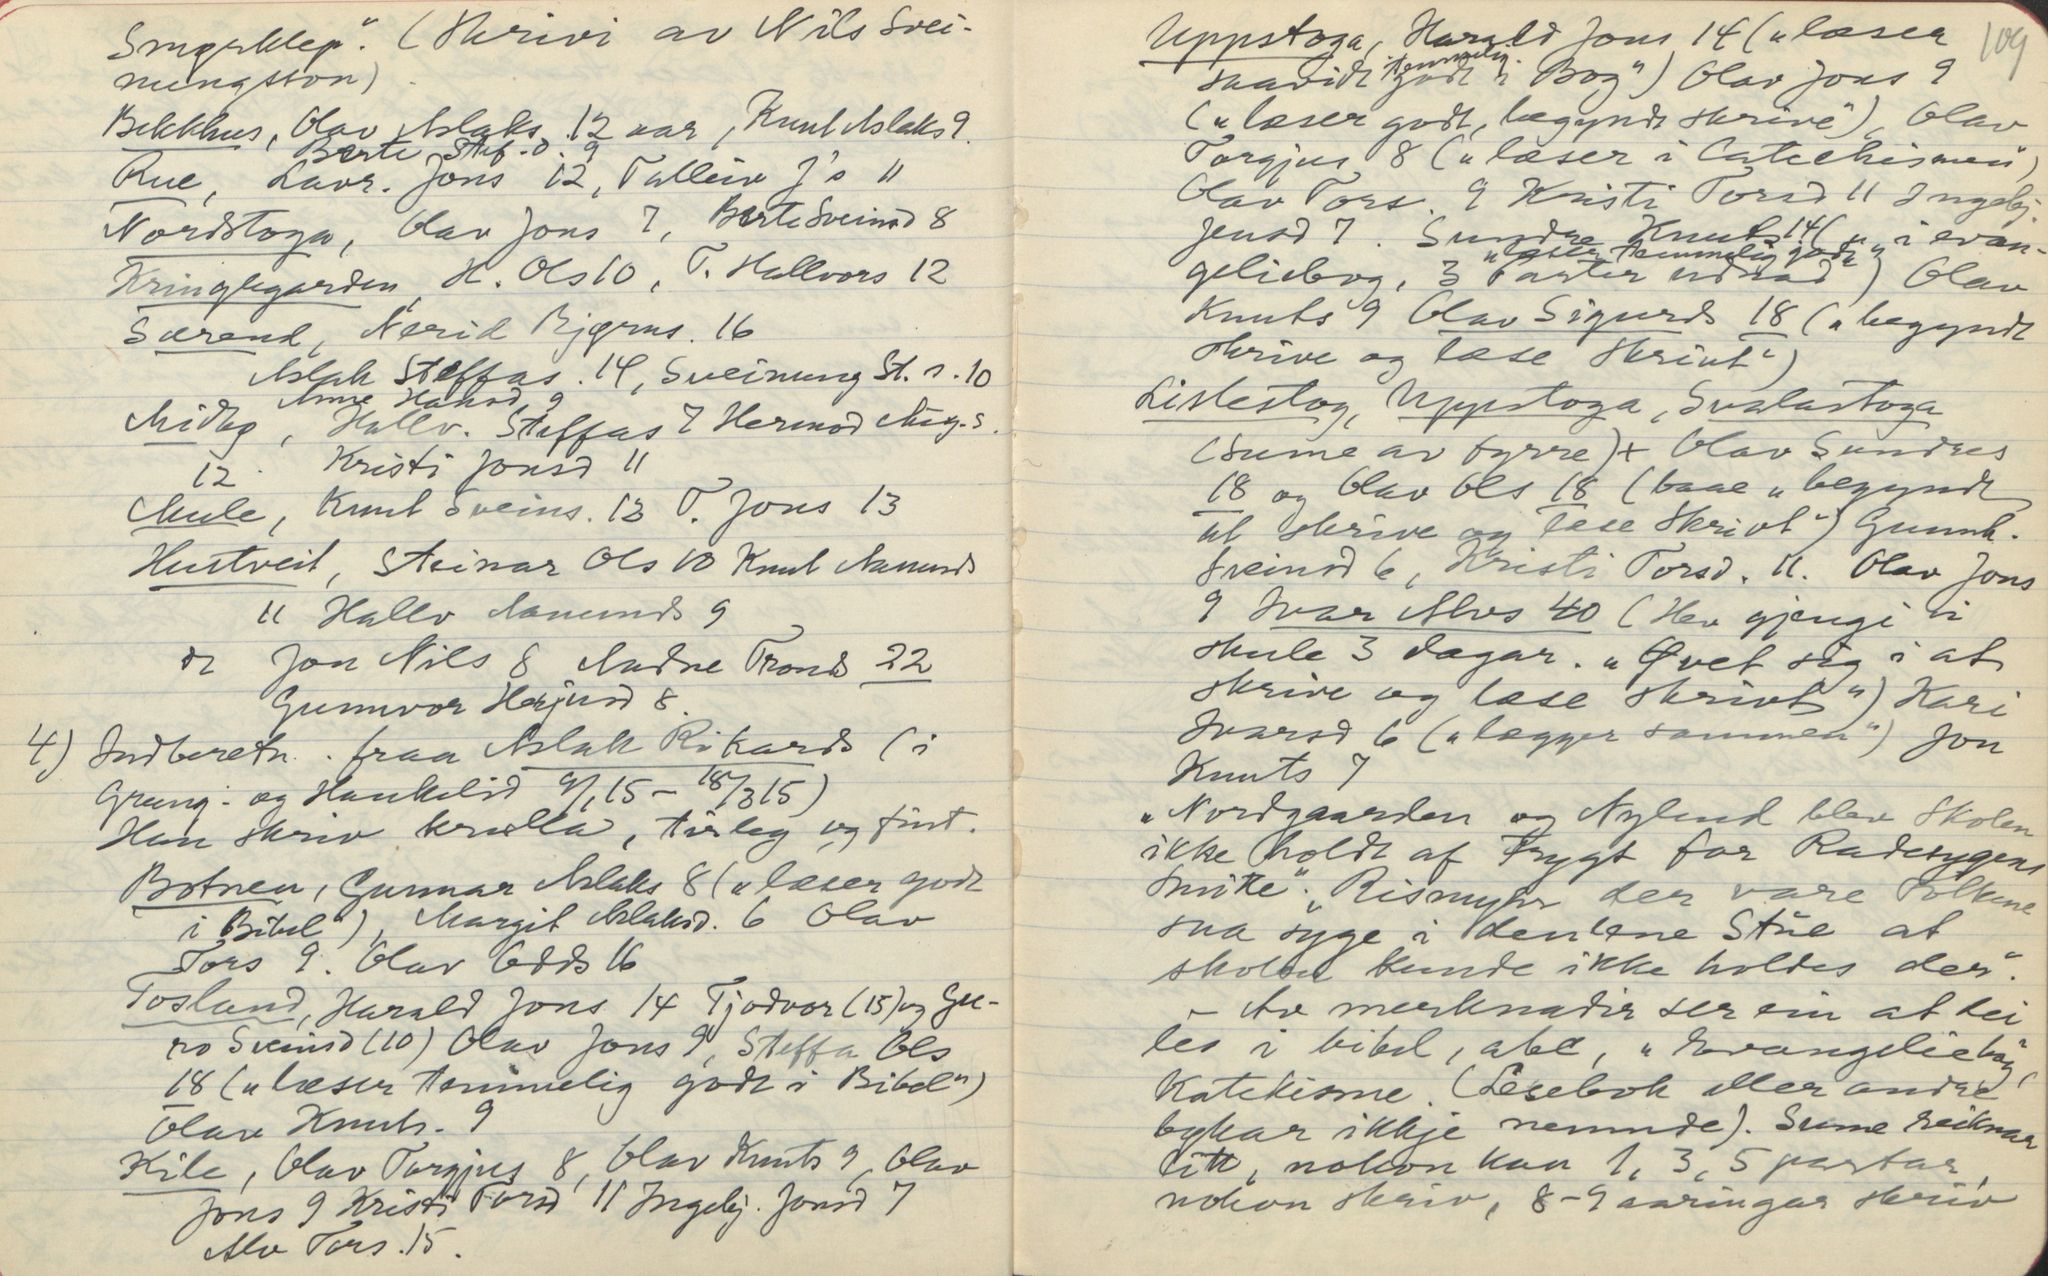 Smørklep". (Skrivi av Nils Svei-
nungsson)
Bekkhus, Olav Aslaks. 12 aar, Knut Aslaks 9.
Berte Stef.d. 9
Rue, Lavr. Jons 12, Talleiv J's 11
Nordstoga, Olav Jons 7, Berte Sveinsd 8
Kringlegarden, H. Ols 10, T. Hallvors 12
Særend, Nerid Bjørns. 16
Aslak Steffas. 14, Sveinung St. s. 10
Anne Hansd. 9
Midbø, Hallv. Steffas 7 Hermod
12. Kristi Jonsd 11
Mule, Knut Sveins. 13 T. Jons 13
Hustveit, Steinar Ols 10 Knut Aamunds
11 Hallv Aamunds 9
Jon Nils 8 Aadne Tronds 22
Gunnvor Herjusd 8.
4) Indberetn. fraa Aslak Rikards (i
Grung- og Haukelid 9/1 15 – 18/3 15)
Han skriv krulla, tirleg og fint.
Botnen, Gunnar Aslaks 8 („læser godt
i Bibel"), Margit Aslaksd. 6 Olav
Tors 9. Olav Odds 16
Tosland, Harald Jons 14 Tjodvor (15) og Gu-
ro Sveinsd (10) Olav Jons 9, Steffa Ols
18 („læser temmelig godt i Bibel")
Olav Knuts. 9
Kile, Olav Torgjus 8, Olav Knuts 9, Olav
Jons 9 Kristi Torsd 11 Ingebj. Jonsd 7
Alv Tors. 15.
109
Uppstoga, Harald Jons 14 („læser
temmelig
saavidt godt i Bog") Olav Jons 9
(„læser godt, begyndt skrive"), Olav
Torgjus 8 („læser i Catechismen")
Olav Tors. 9 Kristi Torsd 11 Ingebj.
Jonsd 7. Sundre Knuts 14 („ i evan-
„læser temmelig godt"
geliebog, 3 Parter udnad") Olav
Knuts 9 Olav Sigurds 18 („begyndt
skrive og læse skrivt")
Listestog, Uppstoga, Svalastoga
(sume av fyrre) + Olav Sundres
18 og Olav Ols 18 (baae „begyndt
at skrive og læse skrivt") Gunnh.
Sveinsd 6, Kristi Torsd. 11. Olav Jons
9 Ivar Alvs 40 (Hev gjengi i
skule 3 dagar. „Øvet sig i at
skrive og læse skrivt") Kari
Ivarsd 6 („lægger sammen") Jon
Knuts 7
„Nordgaarden og Nylend blev Skolen
ikke holdt af Frygt for Radesygens
Smitte". „Rismyhr der vare Folkene
saa syge i den ene Stue at
skolen kunde ikke holdes der".
– Av merknadir ser ein at dei
les i bibel, abc, „Evangeliebog",
Katekisme. (Lesebok eller andre
bøkar ikkje nemnde). Sume reiknar
litt, nokon kan 1, 3, 5 partar,
nokon skriv, 8–9 aaringar skriv